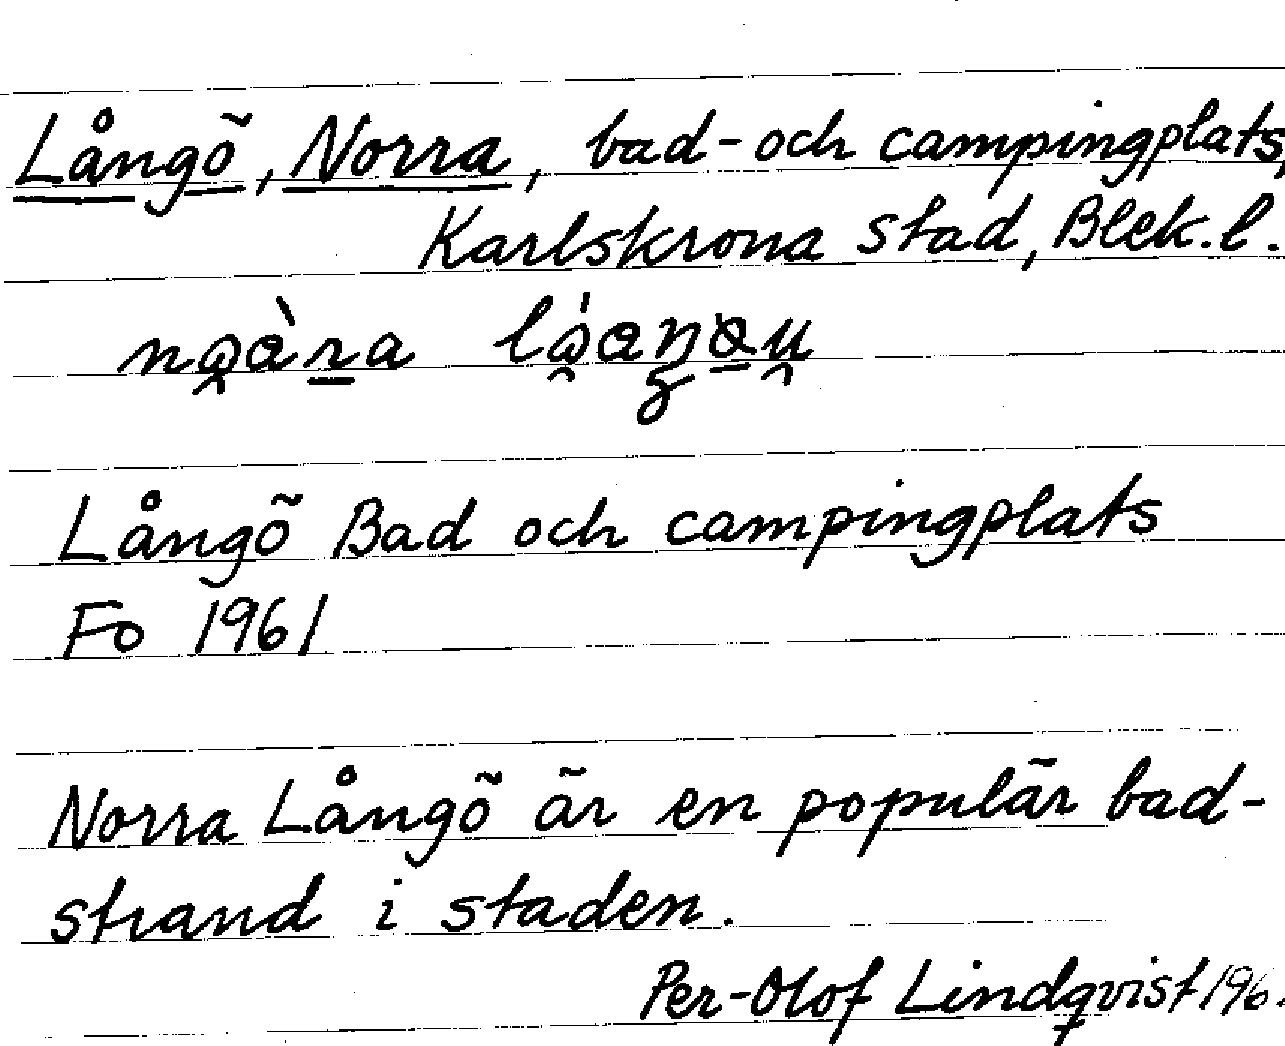 Långö, Norra, bad- och campingplats,
Karlskrona stad, Blek. l.
Långö Bad och campingplats
Fo 1961
Norra Långö är en populär bad-
strand i staden.
Per-Olof Lindqvist